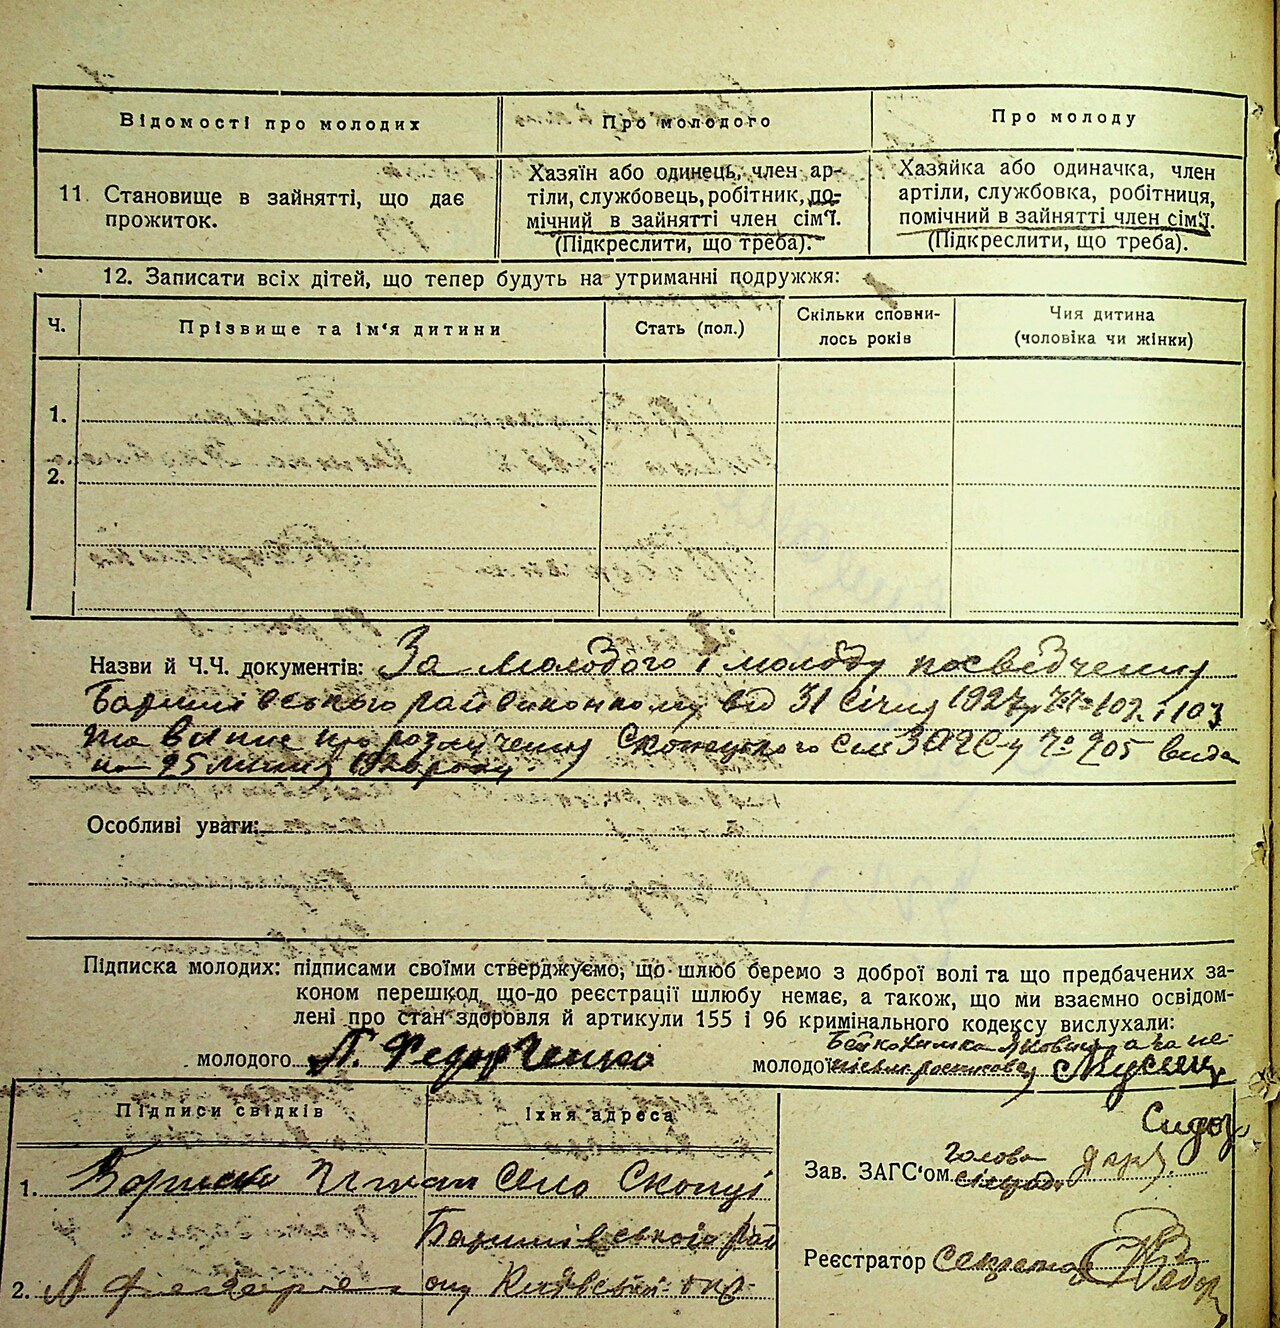 Відомості про молодих
Про молодого
Про молоду
11. Становище в зайнятті, що дає
прожиток.
Хазяїн або одинець, член ар-
тіли, службовець, робітник, по-
мічний в зайнятті член сім'ї.
(Підкреслити, що треба).
Хазяйка або одиначка, член
артіли, службовка, робітниця,
помічний в зайнятті член сім'ї.
(Підкреслити, що треба).
12. Записати всіх дітей, що тепер будуть на утриманні подружжя:
Ч.
Прізвище та ім'я дитини
Стать (пол.)
Скільки сповни-
лось років
Чия дитина
(чоловіка чи жінки)
1.
2.
Назви й Ч.Ч. документів: За молодого і молоду посвідчення
Баришівського райвиконкому від 31 січня 1927 р № 102 і 103
та випис про розлучення ЗАГС-у № 205 вида
но 25
Особливі уваги:
Підписка молодих: підписами своїми стверджуємо, що шлюб беремо з доброї волі та що предбачених за-
коном перешкод, що-до реєстрації шлюбу немає, а також, що ми взаємно освідом-
лені про стан здоровля й артикули 155 і 96 кримінального кодексу вислухали:
молодого П. Федорченко
молодої а за не
Підписи свідків
Їхня адреса
1. Село Скопці
Баришівського рай
2. ону Київської окр.
Зав. ЗАГС'ом Голова
сільради
Реєстратор Секретар